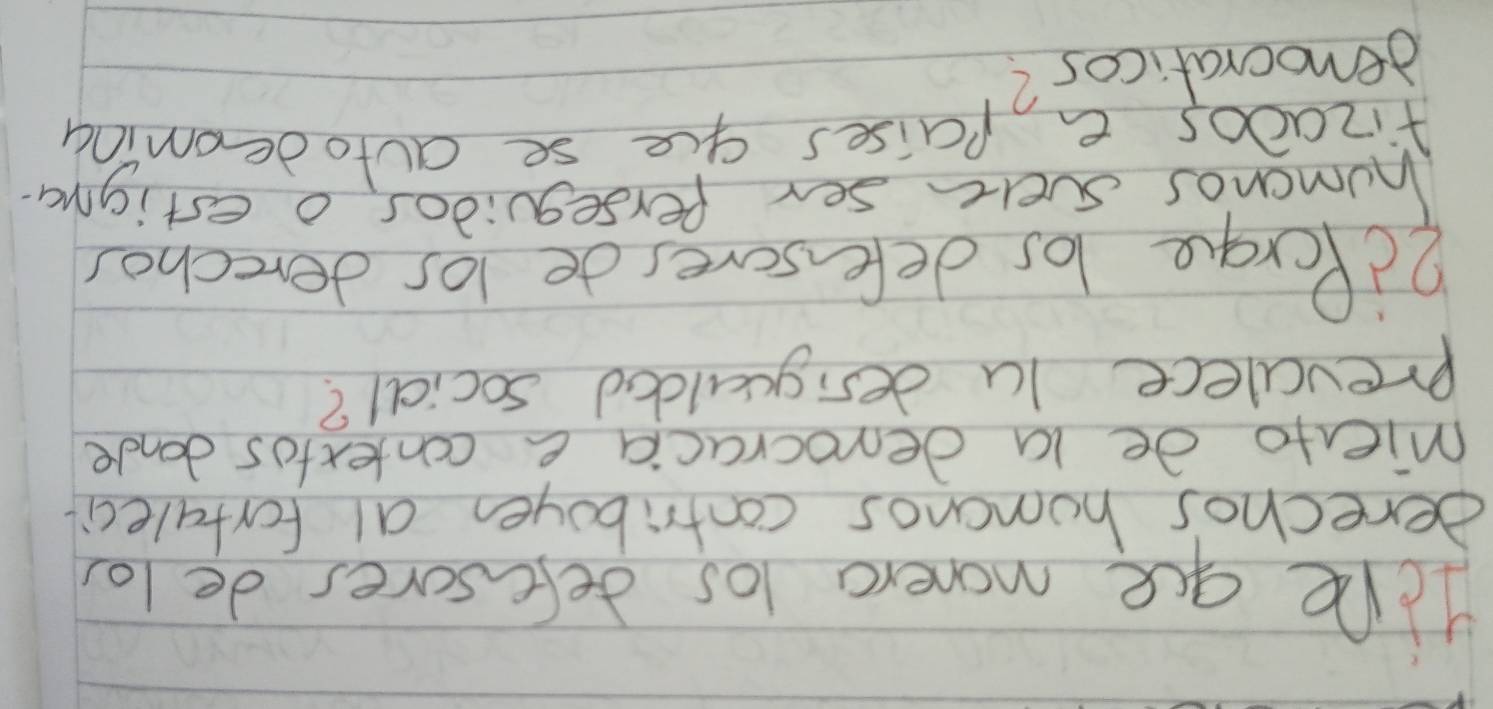 1¿De que manera los defensores de los
derechos humanos contribuyen al fortaleci-
miento de la democracia en contextos donde
prevalece la desigualdad social?
2¿Porque los defensores de los derechos
humanos suelen ser perseguidos o estigma-
tizados en paises que se autodenomina
democraticos?